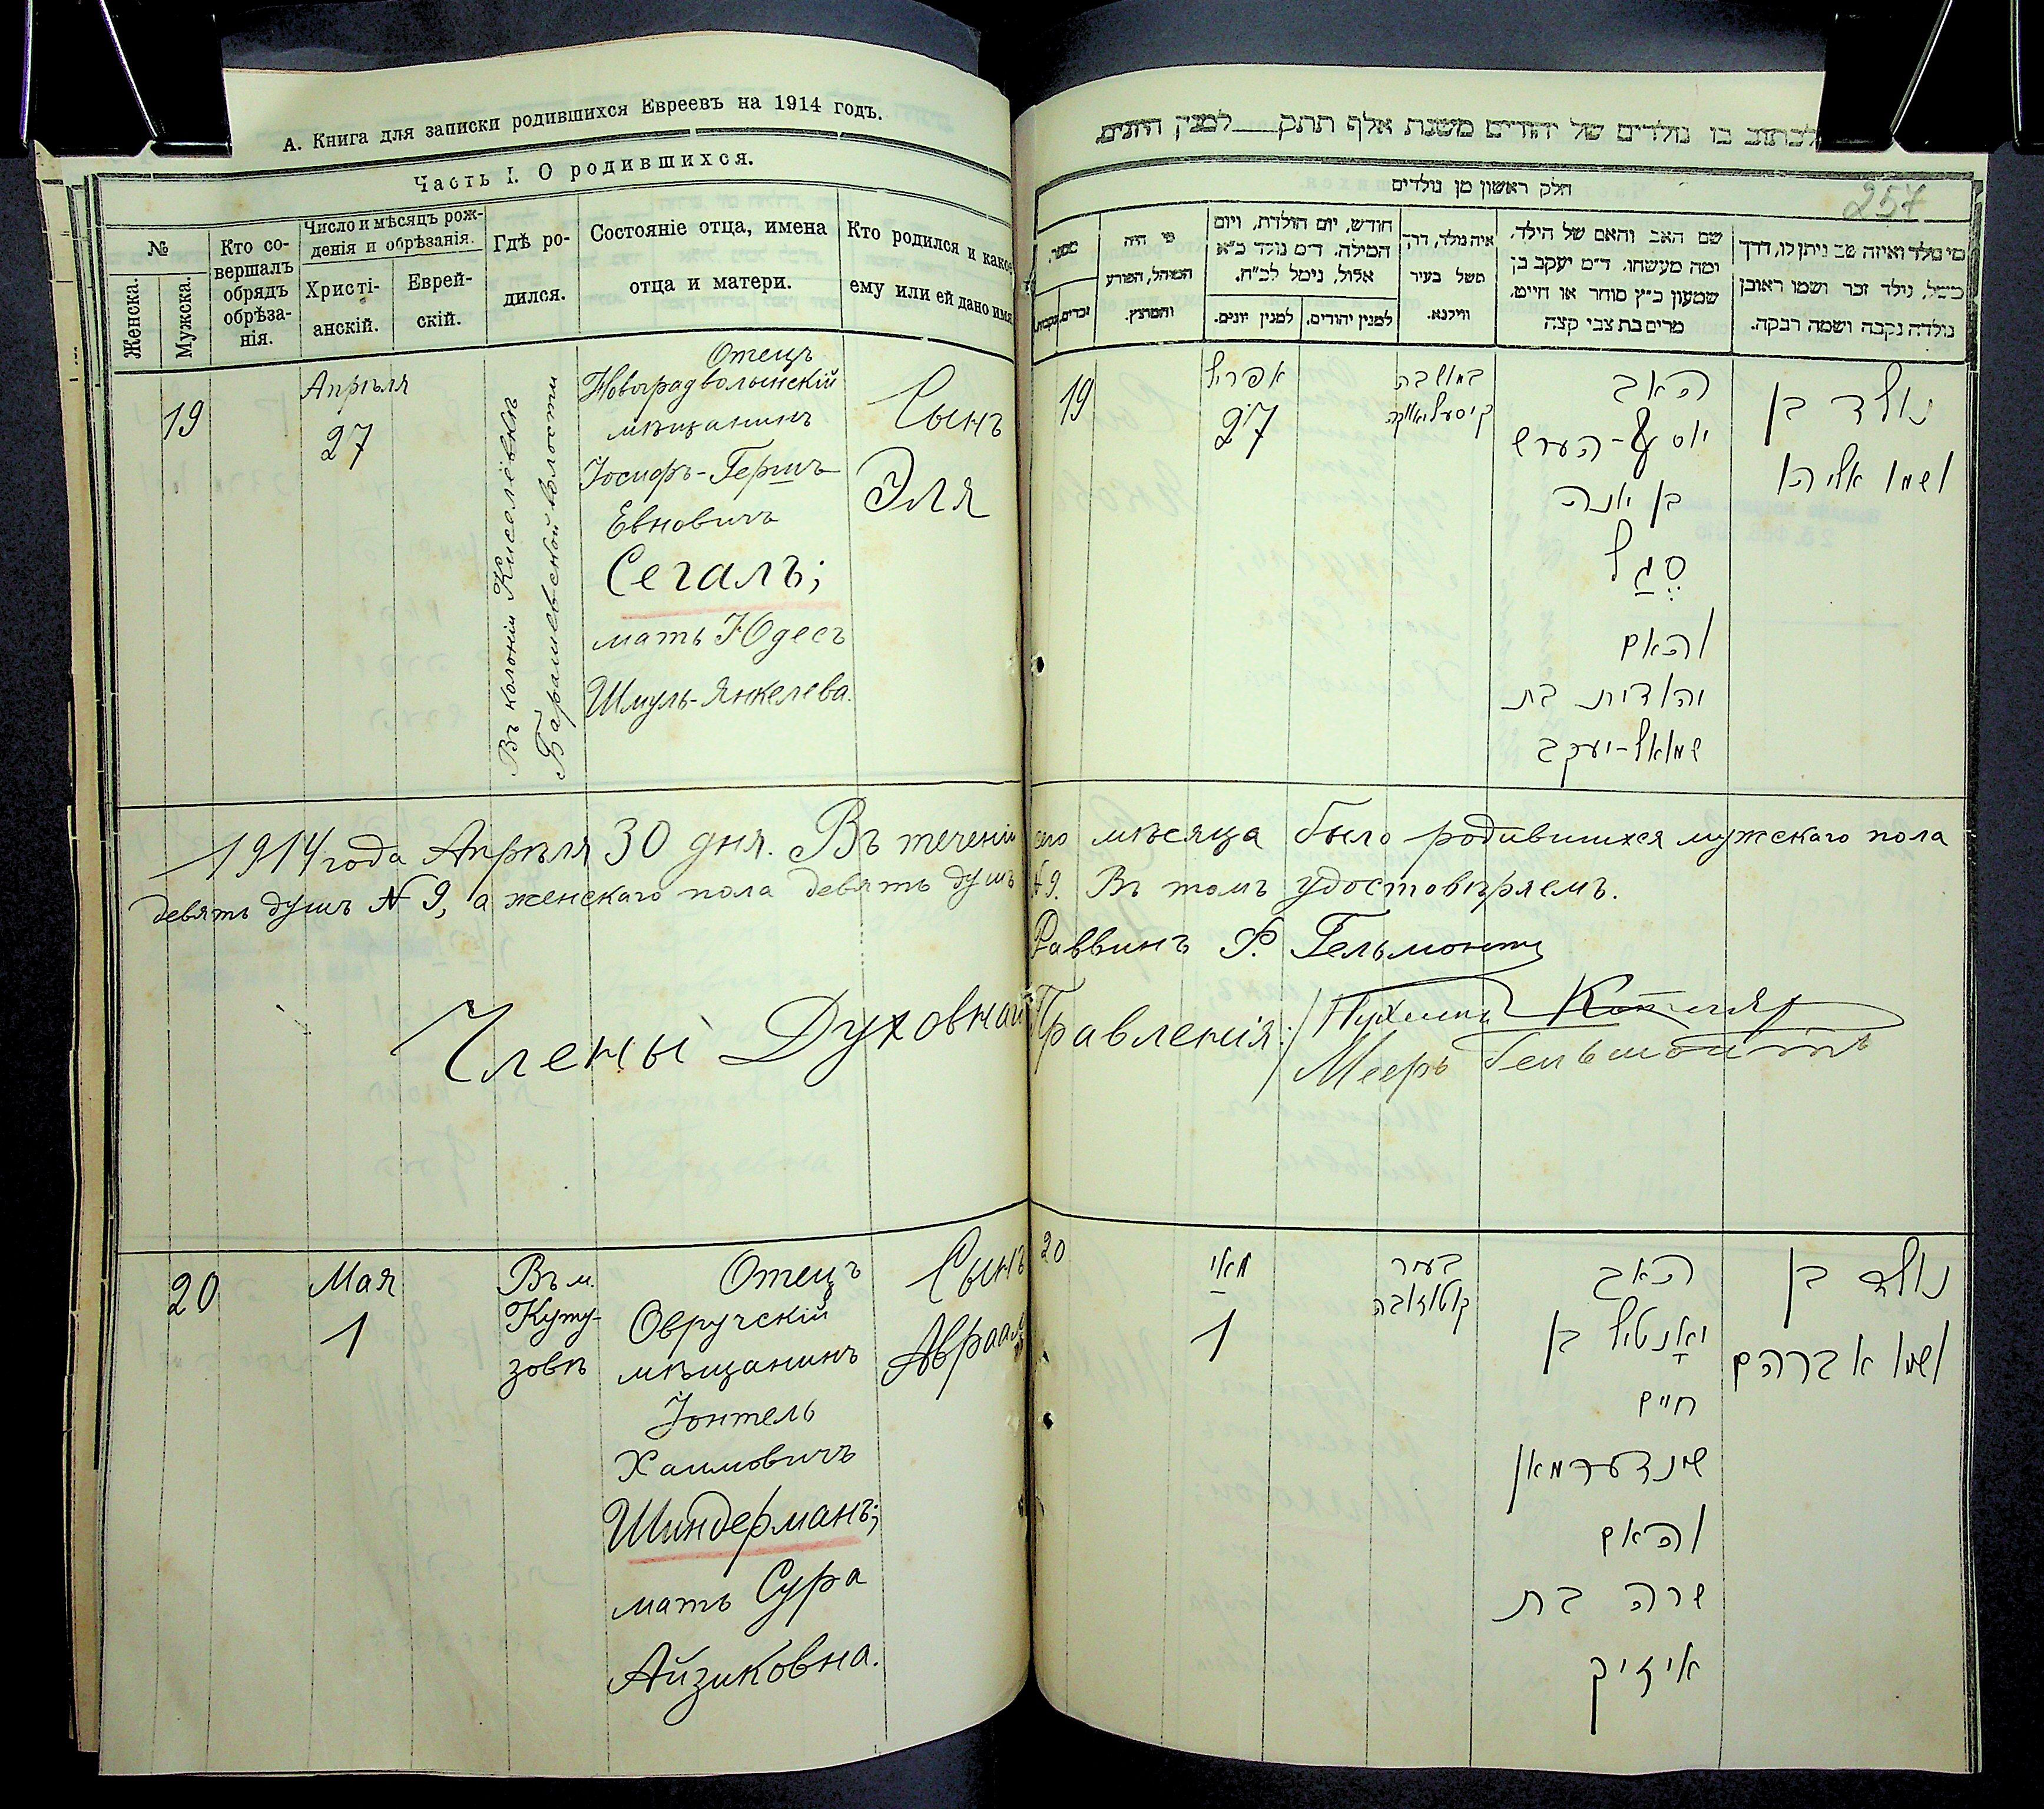 А. Книга для записки родившихся Евреевъ на 1914 годъ.
Часть I. О родившихся.
№
Женска.
Мужска.
Кто со-
вершалъ
обрядъ
обрѣза-
нія.
Число и мѣсяцъ рож-
денія и обрѣзанія.
Христі-
анскій.
Еврей-
скій.
Гдѣ ро-
дился.
Состояніе отца, имена
отца и матери.
Кто родился и какое
ему или ей дано имя
19
Апрѣля
27
Въ колоніи Киселёвкѣ
Барашевской волости
Отецъ
Новоградволынскій
мѣщанинъ
Іосифъ-Гершъ
Евновичъ
Сегалъ;
мать Юдесъ
Шмуль-Янкелева.
Сынъ
Эля
1914 года Апрѣля 30 дня. Въ теченіи сего мѣсяца было родившихся мужскаго пола
девять душъ № 9, а женскаго пола девять душъ № 9. Въ томъ удостовѣряемъ.
Раввинъ Ф. Гельмонтъ
Члены Духовнаго Правленія:
Котляръ
Мееръ Гельмонтъ
20
Мая
1
Въ м.
Куту-
зовѣ
Отецъ
Овручскій
мѣщанинъ
Іонтель
Хаимовичъ
Шиндерманъ;
мать Сура
Айзиковна.
Сынъ
Авраам
לכתוב בו נולדים של יהודים משנת אלף תתק למנין היונים.
257
חלק ראשון מן נולדים
מי נולד ואיזה שם ניתן לו, דרך
משל, נילד זכר ושמו ראובן
נולדה נקבה ושמה רבקה.
שם האב והאם של הילד,
ומה מעשהו. ד״מ יעקב בן
שמעון כ״ץ סוחר או חייט,
מרים בת צבי קצה
איה נולד, דרך
משל בעיר
ווילנא.
חודש, יום הולדת, ויום
המילה. ד״מ נולד כ״א
אלול, נימל לכ״ח.
למנין יהודים.
למנין יונים.
מי היה
המוהל, הפורע
והמוצץ.
מספר.
זכרים.
נקבות.
19
אפריל
27
במושבה
קיסעליאווקה
האב
יוסף-הערש
בן יונה
סגל
והאם
יהודית בת
שמואל-יעקב
נולד בן
ושמו אליהו
20
מאי
1
בעיר
קוטוזובה
האב
יאנטיל בן
חיים
שינדערמאן
והאם
שרה בת
אייזיק
נולד בן
ושמו אברהם